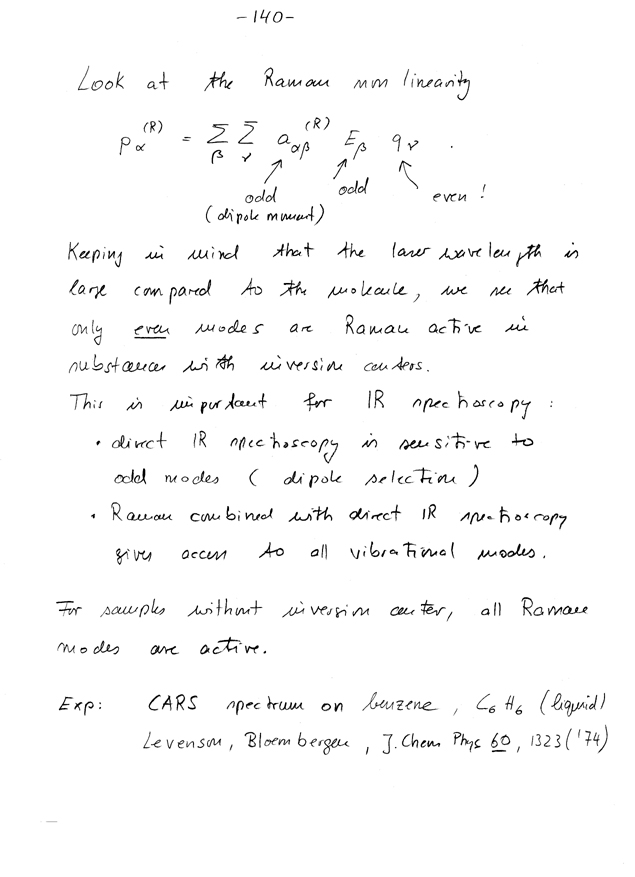 -140-
Look at the Raman non linearity
p_α^(R) = Σ_β Σ_ν a_αβ^(R) E_β q_ν .
odd odd even !
(dipole moment)
Keeping in mind that the laser wavelength is
large compared to the molecule, we see that
only even modes are Raman active in
substances with inversion centers.
This is important for IR spectroscopy :
• direct IR spectroscopy is sensitive to
odd modes ( dipole selection )
• Raman combined with direct IR spectroscopy
gives access to all vibrational modes.
For samples without inversion center, all Raman
modes are active.
Exp: CARS spectrum on benzene , C6 H6 (liquid)
Levenson, Bloembergen , J. Chem Phys 60, 1323 ('74)